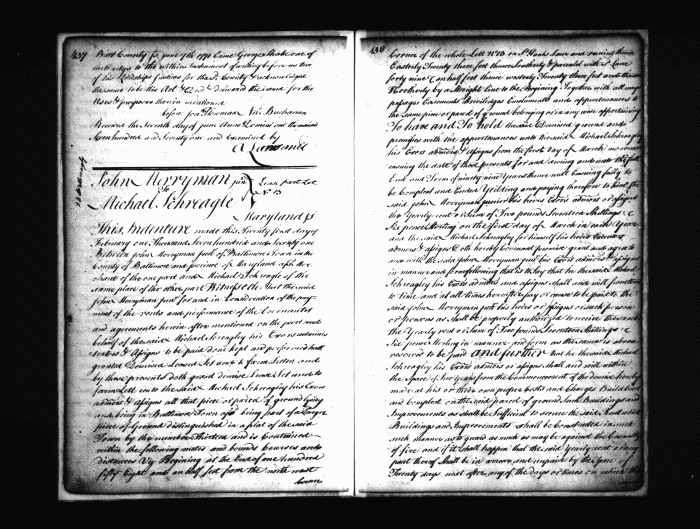 437
Balt County Ss June 7th 1771 Came George Shake one of
the same to be his Act & Deed and the land for the
Uses & purposes therein mentioned
before Jos Bowman Wm Buchanan
Received the Seventh day of June Anno Domini one thousand
Seven hundred and Seventy one and Examined by
A Lawson Clk
John Merryman Junr
To
Michael Schreagle
Lease part Lot
No 13
Maryland Ss
This Indenture made this Twenty first day of
February one Thousand Seven hundred and Seventy one
Between John Merryman Junr of Baltimore Town in the
County of Baltimore and province of Maryland
of the one part and Michael Schreagle of the
same place of the other part Witnesseth that the said
John Merryman Junr for and in Consideration of the pay-
ment of the rents and performance of the Covenants
and agreements herein after mentioned on the part and
behalf of the said Michael Schreagle his Exors
admors & Assigns to be paid done kept and performed hath
granted Demised Leased Set and to farm Letten and
by these presents doth grant demise Lease Set and to
farm Lett unto the said Michael Schreagle his Exors
admors & assigns all that piece or parcel of ground lying
and being in Baltimore Town and being part of a Larger
piece of Ground distinguished in a plat of the said
Town by the number Thirteen and is Contained
within the following metes and bounds Courses and
distances Viz Begining at the End of one hundred
fifty Eight and an half feet from the north east
Corner
438
Corner of the whole Lott No 13 on St Pauls Lane and running thence
Easterly Twenty three feet thence Northerly & parallel with sd Lane
forty nine & an half feet thence westerly Twenty three feet and thence
Southerly by a Straight line to the Begining Together with all ways
passages Easements Priviledges Emoluments and appurtenances to
the same piece or parcel of ground belonging or in any wise appertaining
To have and To hold the said Demised ground and
premises with the appurtenances unto the said Michael Schreagle
his Exors admors & assigns from the first day of March
ensuing the date of these presents for and during and unto the full
End and Term of ninety nine Years thence next Ensuing fully to
be Compleat and Ended Yielding and paying therefore to him the
said John Merryman Junr his heirs Exors admors or assigns
the Yearly rent or Sum of Two pounds Seventeen Shillings &
Six pence Sterling on the first day of March in each Year
and the said Michael Schreagle for himself his heirs Exors
admors & assigns doth hereby Covenant promise grant and agree to
and with the said John Merryman Junr his Exors admors & assigns
in manner and form following that is to say that he the said Michael
Schreagle his Exors admors and assigns shall and will from time
to time and at all times hereafter pay or cause to be paid to the
said John Merryman Junr his heirs or assigns or such person
or persons as shall be properly authorized to receive the same
the Yearly rent or Sum of Two pounds Seventeen Shillings &
Six pence Sterling in manner and form as the same is above
reserved to be paid and further that he the said Michael
Schreagle his Exors admors or assigns shall and will within
the Space of two Years from the Commencement of the demise hereby
made at his or their own proper Costs and Charges Build Erect
and Compleat on the said parcel of ground such Buildings and
Improvements as shall be Sufficient to secure the said Rent which
Buildings and Improvements shall be Constructed in such
such manner as to guard as much as may be against the Casualty
of fire and if it shall happen that the said Yearly rent or any
part thereof Shall be in arrear and unpaid by the Space
Twenty days next after any of the days or times on which the